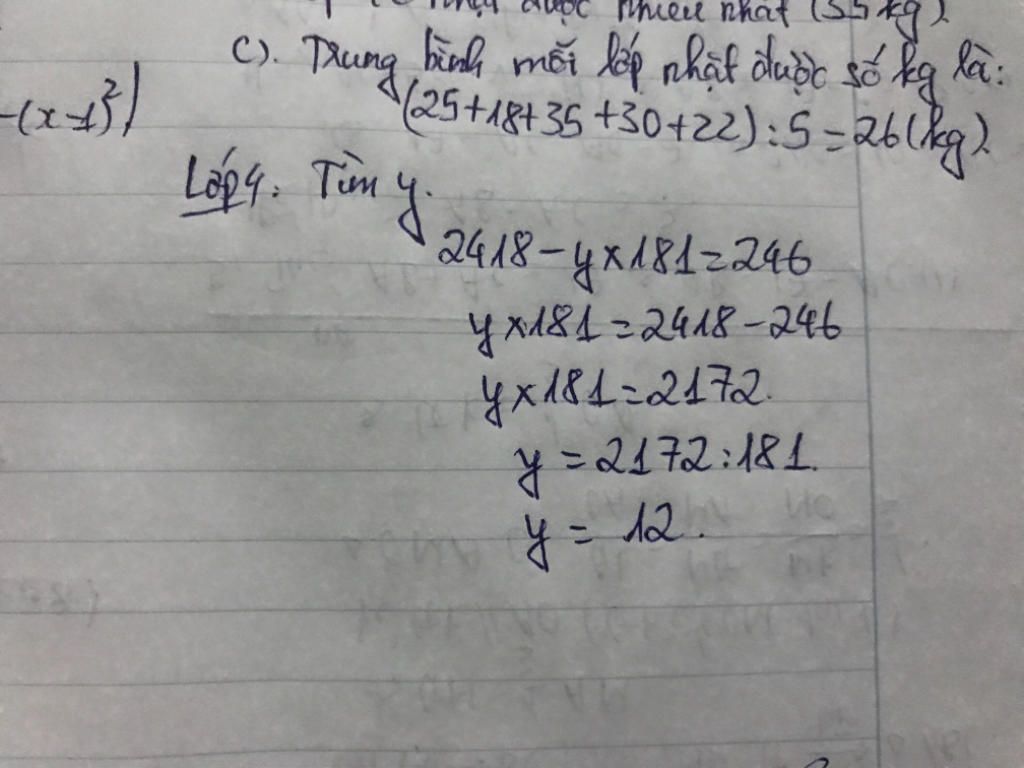 nhặt được nhiều nhất (35 kg).
c). Trung bình mỗi lớp nhặt được số kg là:
-(x-1)²|
(25+18+35+30+22):5=26(kg).
Lớp 4: Tìm y.
2418-y×181=246
y×181=2418-246
y×181=2172.
y=2172:181.
y= 12.